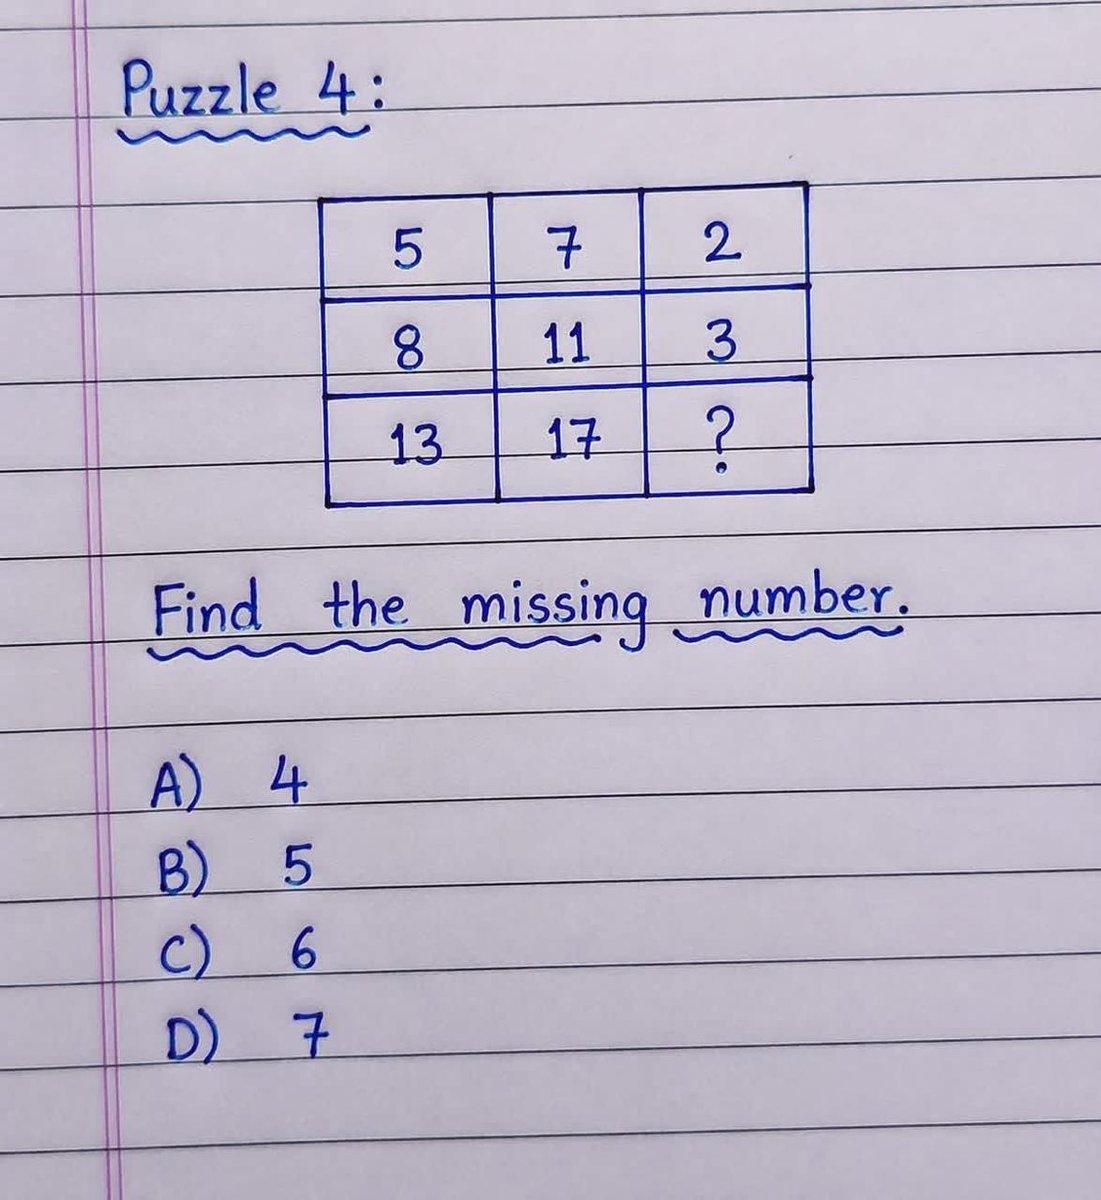 Puzzle 4:
5 7 2
8 11 3
13 17 ?
Find the missing number.
A) 4
B) 5
C) 6
D) 7